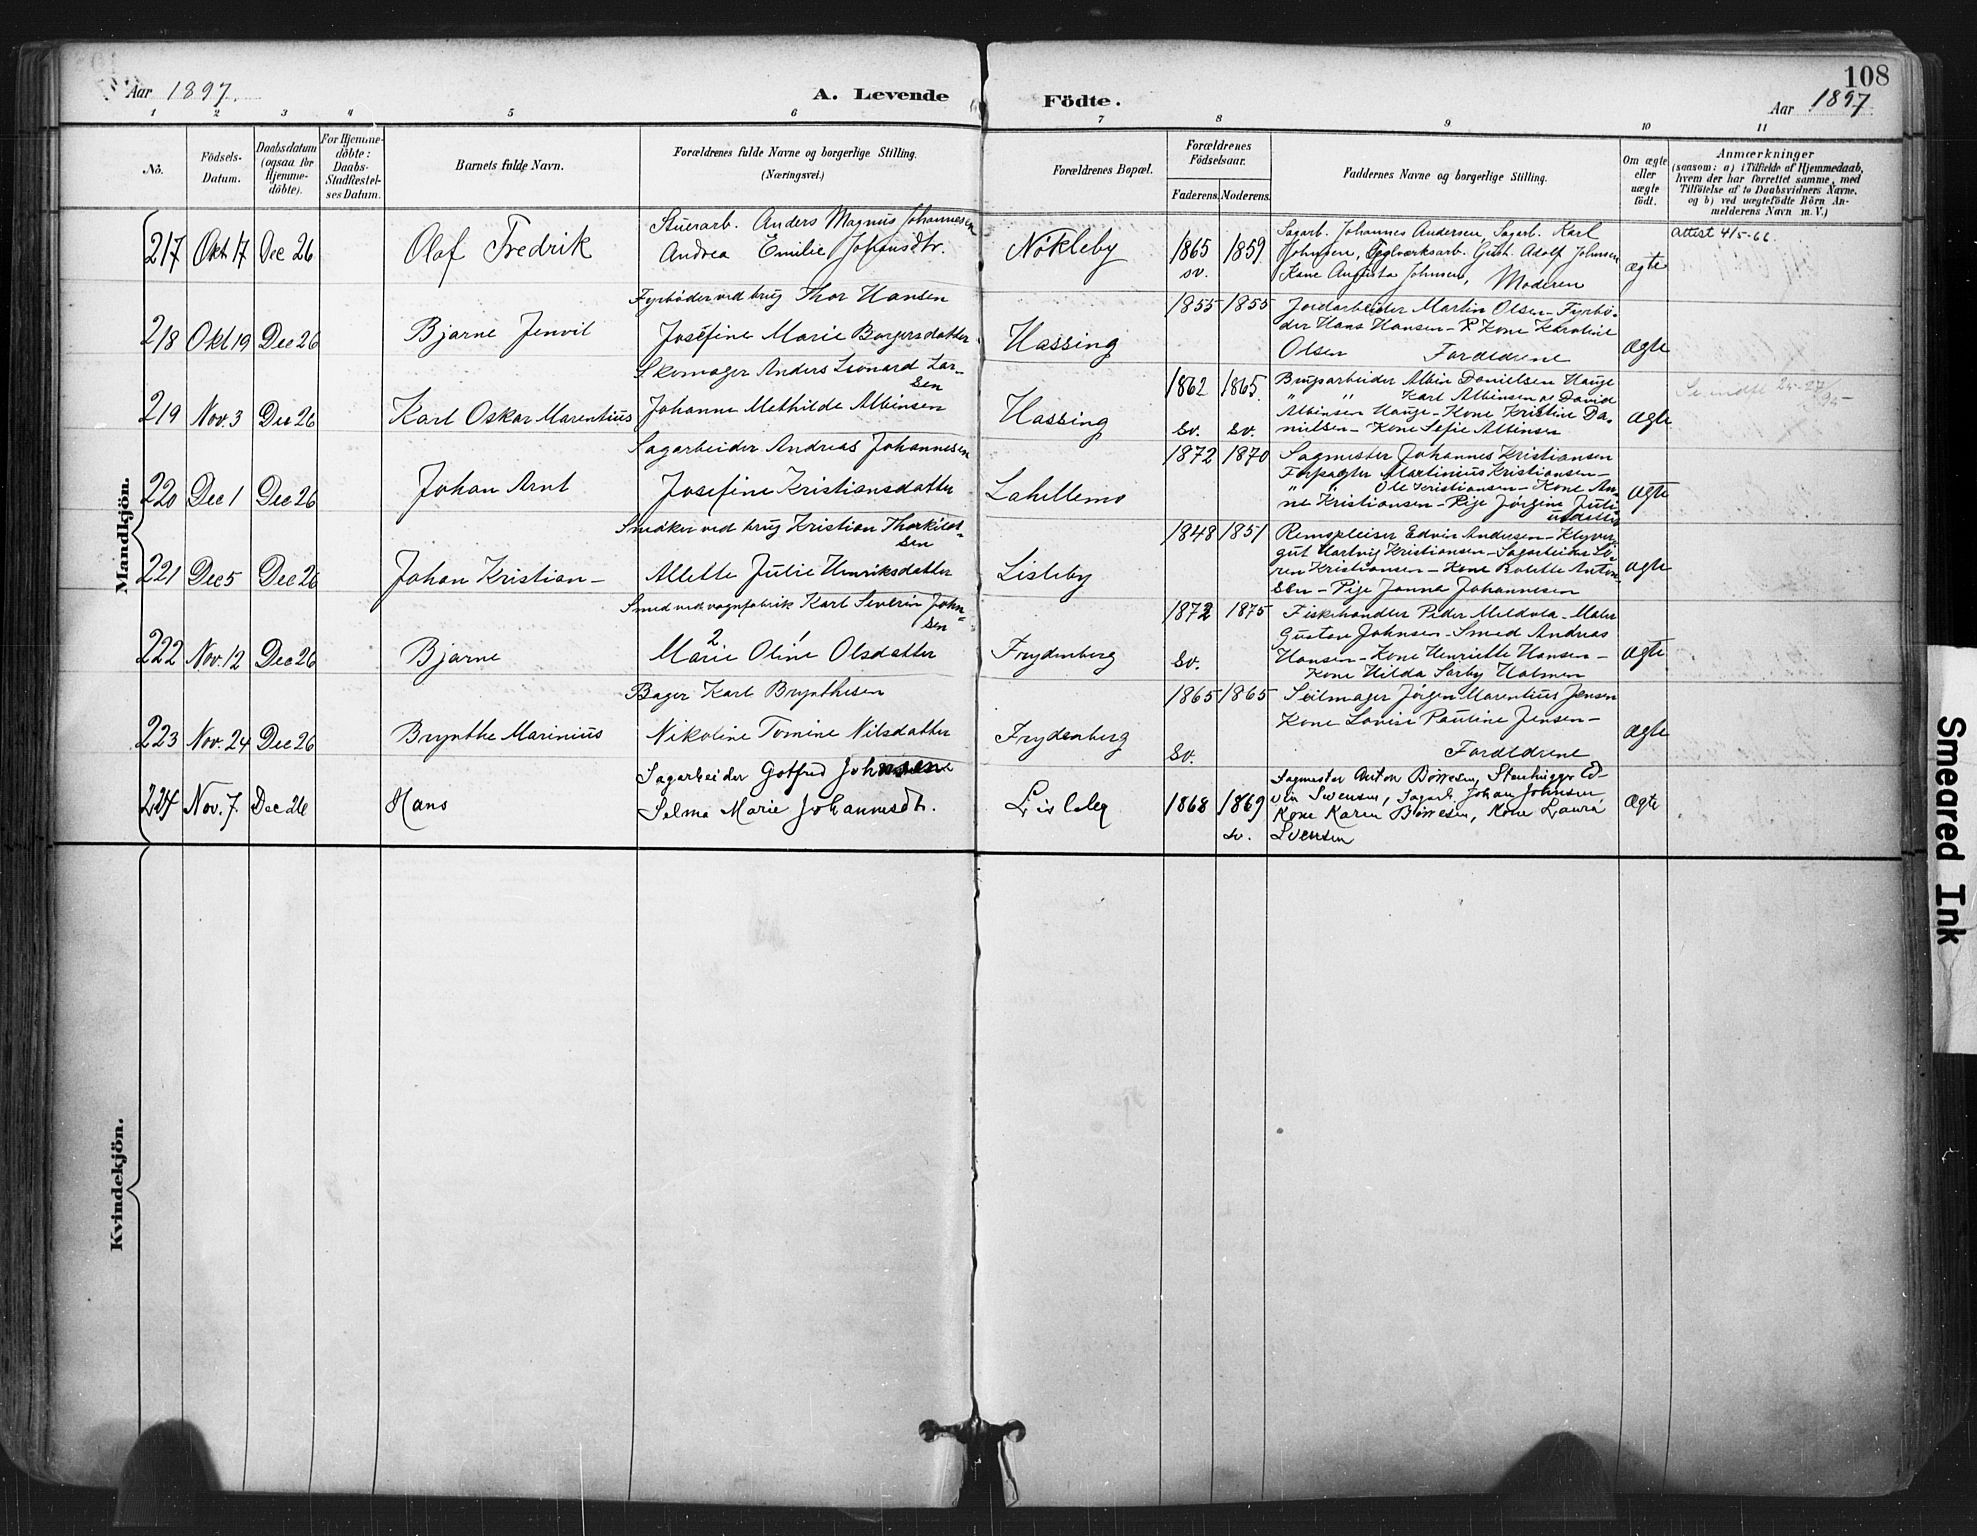 108
Aar 1897.
A. Levende
Födte.
Aar 1897
1 2 3 4 5 6 7 8 9 10 11
No.
Födsels-Datum.
Daabsdatum (ogsaa för Hjemme-döbte).
For Hjemme-döbte: Daabs-Stadfæstel-ses Datum.
Barnets fulde Navn.
Forældrenes fulde Navne og borgerlige Stilling. (Næringsvei.)
Forældrenes Bopæl.
Forældrenes Födselsaar.
Faderens. Moderens.
Faddernes Navne og borgerlige Stilling.
Om ægte eller uægte födt.
Anmærkninger
(saasom: a) i Tilfælde af Hjemmedaab,
hvem der har forrettet samme, med
Tilföielse af to Daabsvidners Navne,
og b) ved uægtefödte Börn An-
melderens Navn m. V.)
Mandkjön.
217 Okt 17 Dec 26 Olaf Fredrik
Stuerarb. Anders Magnus Johannesen
Andrea Emilie Johansdtr.
Nøkleby 1865 sv. 1859
Sagarb. Johannes Andersen, Sagarb. Karl
Johnsen, Teglværksarb. Gust. Adolf Johnsen
Kone Augusta Johnsen, Moderen
ægte
Attest 4/5-66.
218 Okt 19 Dec 26 Bjarne Jenvil
Fyrbøder ved brug Thor Hansen
Josefine Marie Borgersdatter
Hassing 1855 1855
Jordarbeider Martin Olsen - Fyrbø-
der Hans Hansen - Kone Karoline
Olsen Forældrene
ægte
219 Nov. 3 Dec 26 Karl Oskar Marentius
Skomager Anders Leonard Lar-
sen
Johanne Mathilde Albinsen
Hassing 1862 sv. 1865. sv.
Brugsarbeider Albin Danielsen Hauge
" " Karl Albinsen David
Albinsen Hauge - Kone Kristine Da-
nielsen - Kone Sefie Albinsen
ægte
220 Dec 1 Dec 26 Johan Arnt
Sagarbeider Andreas Johannesen
Josefine Kristiansdatter
Lahellemo 1872 1870
Sagmester Johannes Kristiansen
Forpagter Martinius Kristiansen -
" Ole Kristiansen - Kone An-
ne Kristiansen - Pige Jørgine Juli-
usdatter
ægte
221 Dec 5 Dec 26 Johan Kristian -
Smedker ved brug Kristian Thorkild-
sen
Allette Julie Henriksdatter
Lisleby 1848 1851
Remspleiser Edvin Andersen - Klyver-
gut Hartvig Kristiansen - Sagarbeider Sø-
ren Kristiansen - Kone Bolette Anton
sen - Pige Janna Johannesen
ægte
222 Nov. 12 Dec 26 Bjarne
Smed ved vognfabrik Karl Severin John-
sen
2 1
Marie Oline Olsdatter
Frydenberg 1872 sv. 1875
Fiskehandler Peder Meldvla - Maler
Gustav Johnsen - Smed Andreas
Hansen - Kone Henriette Hansen -
Kone Hilda Sarby Halmen
ægte
223 Nov. 24 Dec 26 Brynthe Marinius
Bager Karl Brynthesen
Nikoline Tomine Nilsdatter
Frydenberg 1865 sv. 1865
Seilmager Jørgen Marentius Jensen
Kone Lovise Pauline Jensen -
Forældrene
ægte
224 Nov. 7 Dec 26 Hans
Sagarbeider Gotfred Johnsen
Selma Marie Johannesdt.
Lisleby 1868 1869 sv.
Sagmester Anton Børresen, Stenhugger Ed-
vin Svensen, Sagarb. Johan Johnsen
Kone Karen Børresen, Kone Laura
Svensen
ægte
Kvindekjön.
Smeared Ink